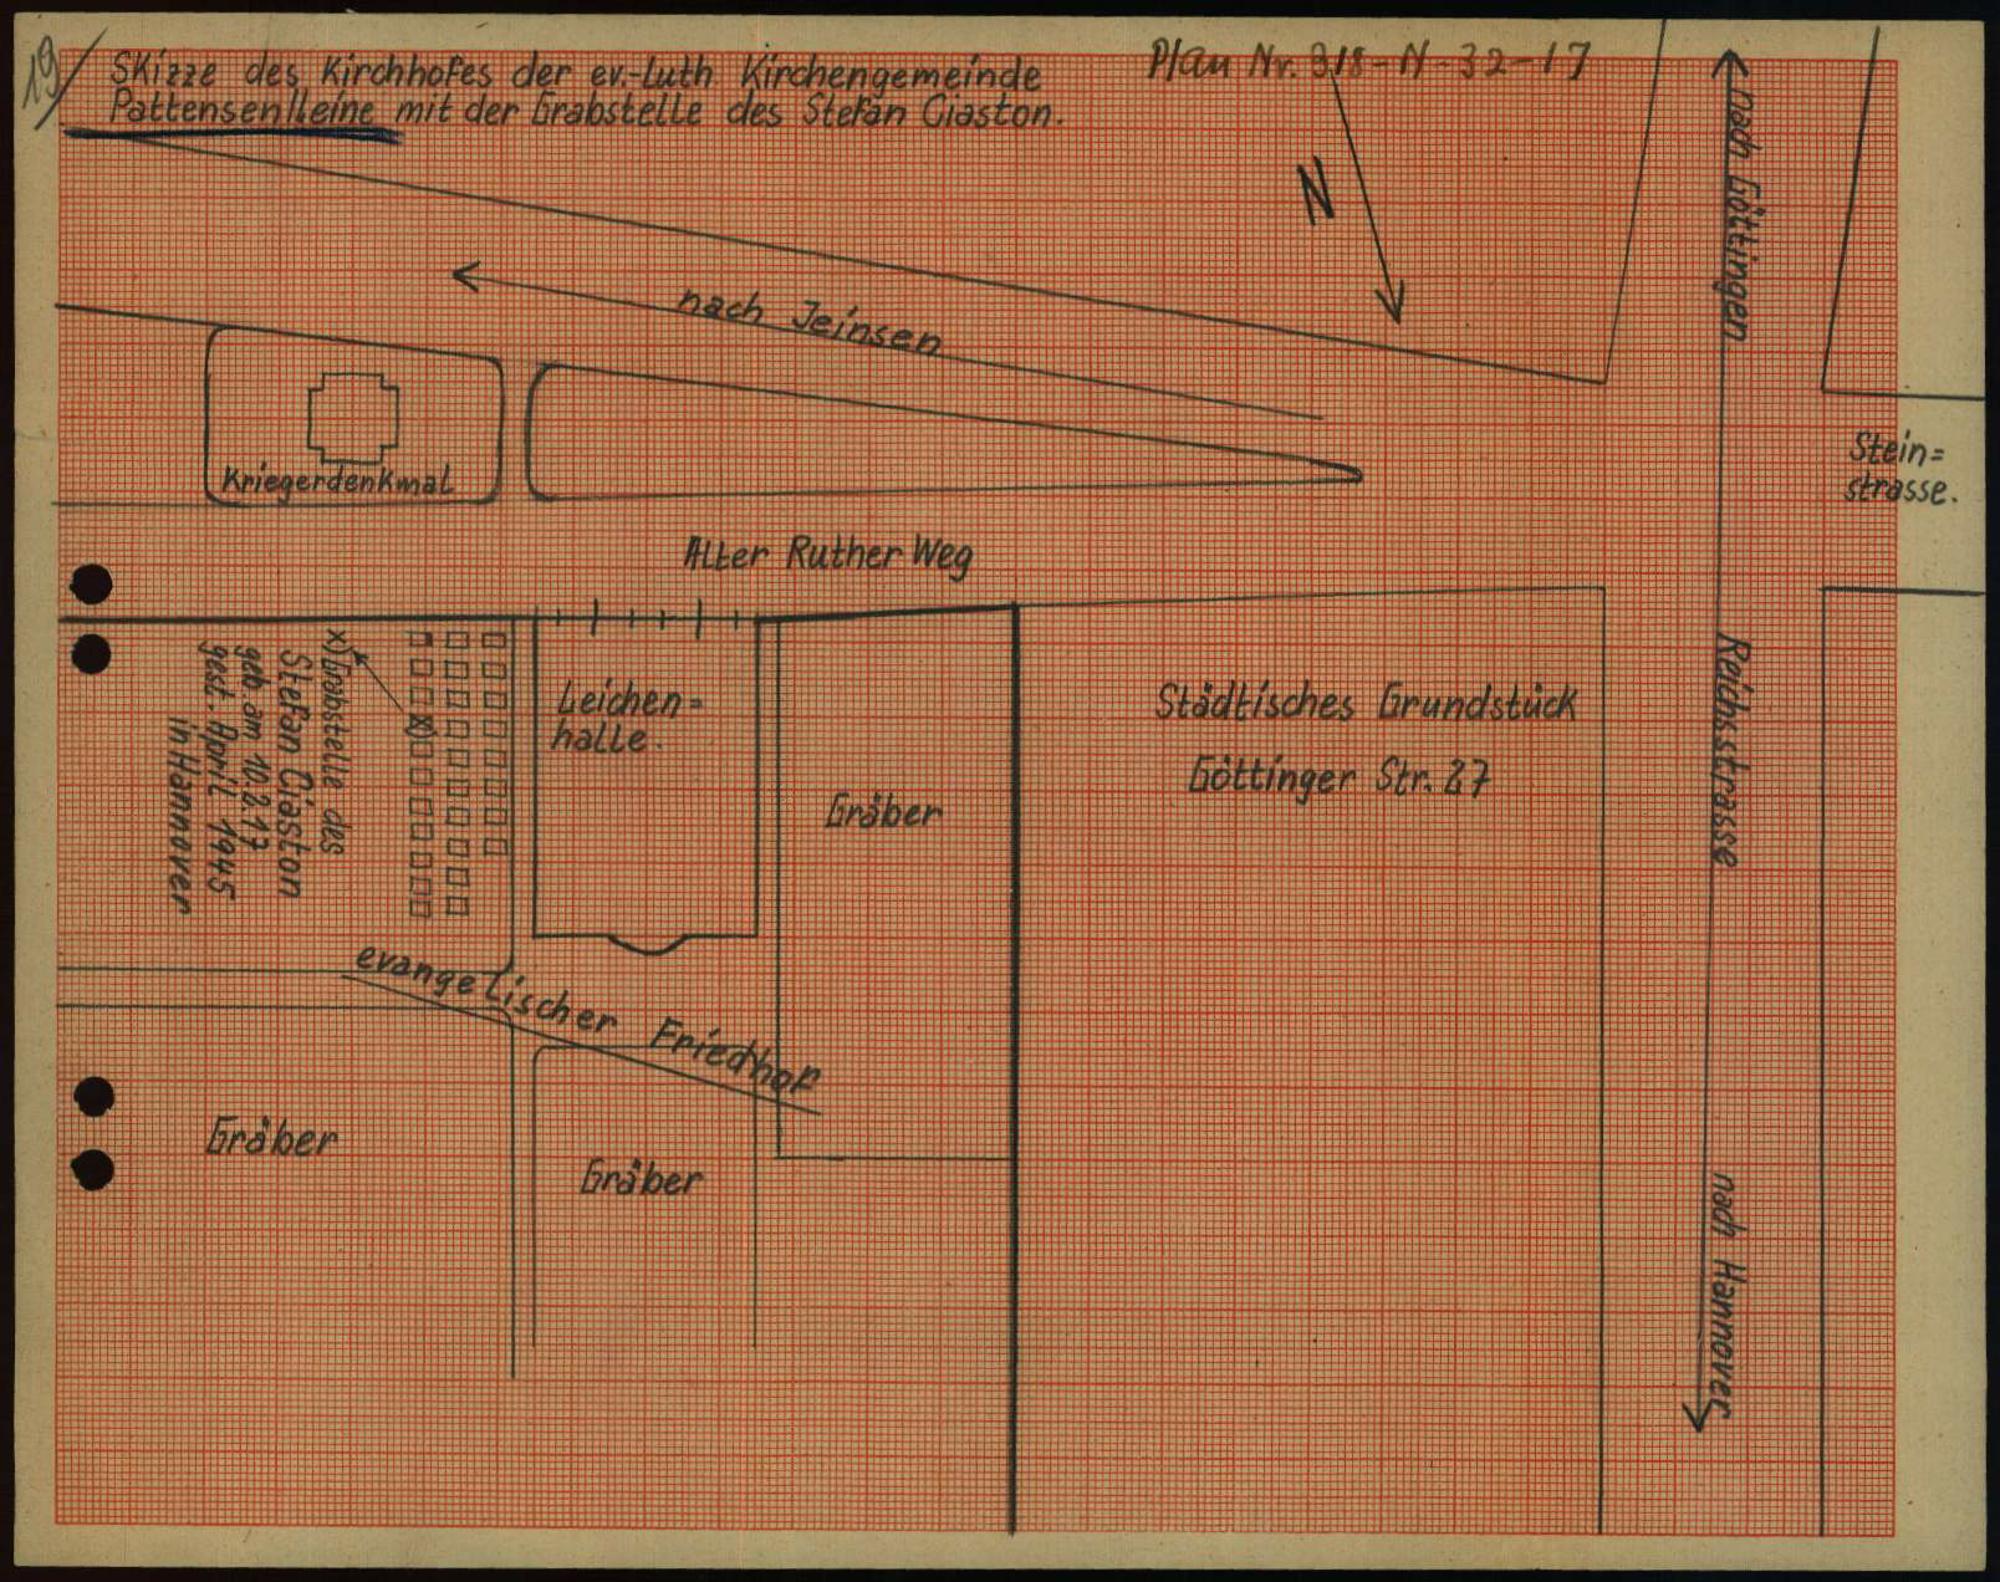 19/
Skizze des Kirchhofes der ev.-Luth. Kirchengemeinde
Pattensen/Leine mit der Grabstelle des Stefan Ciaston.
Plan Nr. 318-N-32-17
N
nach Göttingen
nach Jeinsen
Kriegerdenkmal
Stein=
strasse.
Alter Ruther Weg
x) Grabstelle des
Stefan Ciaston
geb. am 10.2.17
gest. April 1945
in Hannover
x
Leichen=
halle.
Gräber
Städtisches Grundstück
Göttinger Str. 27
Reichsstrasse
evangelischer Friedhof
Gräber
Gräber
nach Hannover